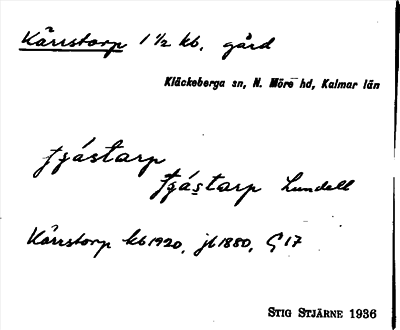 Kärrstorp 1 1/2 kb, gård
Kläckeberga sn, N. Möre hd, Kalmar län
Lundell
Kärrstorp kb 1920, jb 1880, G 17
STIG STJÄRNE 1936